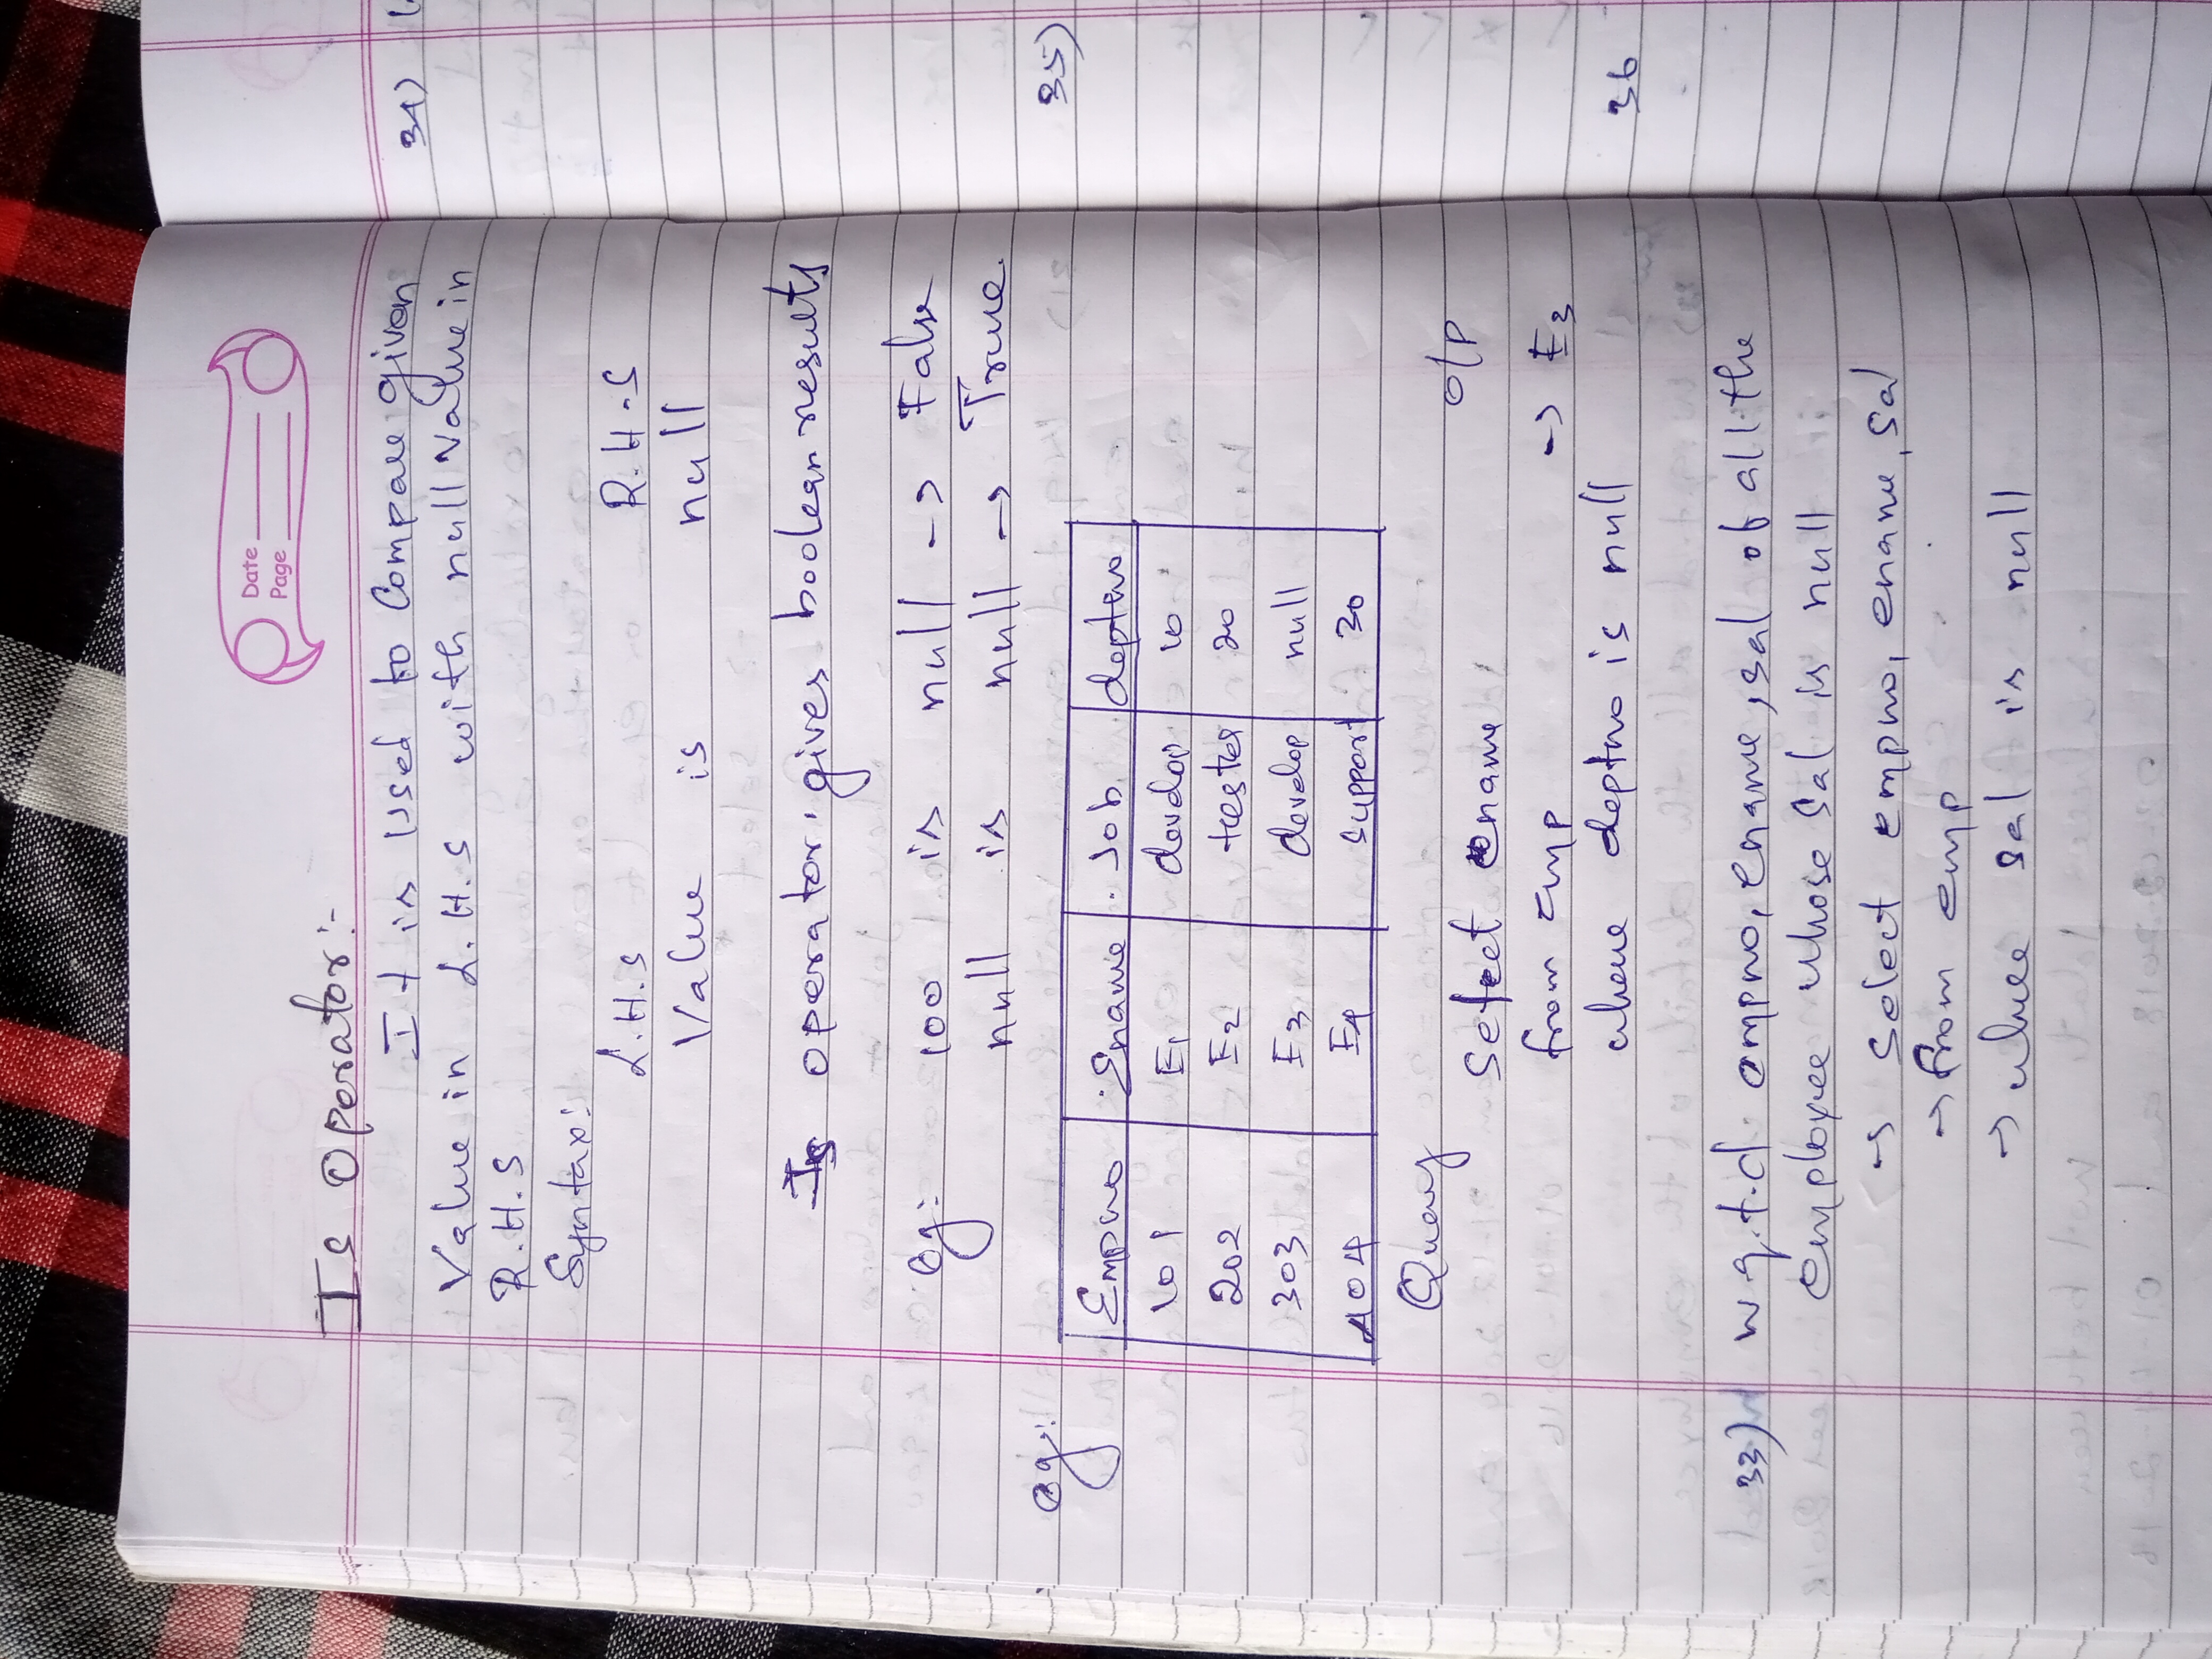 Date
Page
Is Operator:-
It is used to Compare given
Value in L.H.S with null value in
R.H.S
Syntax:
L.H.S R.H.S
Value is null
Is operator gives boolean results
eg: 100 is null → False
null is null → True.
eg:
Empno Ename Job deptno
101 E1 develop 10
202 E2 tester 20
303 E3 develop null
404 E4 support 30
Query O/P
Select ename
from emp → E3
where deptno is null
33) w q.t.d empno, ename, sal of all the
employee whose sal is null
→ Select empno, ename, sal
→ from emp
→ where sal is null
34)
35)
36